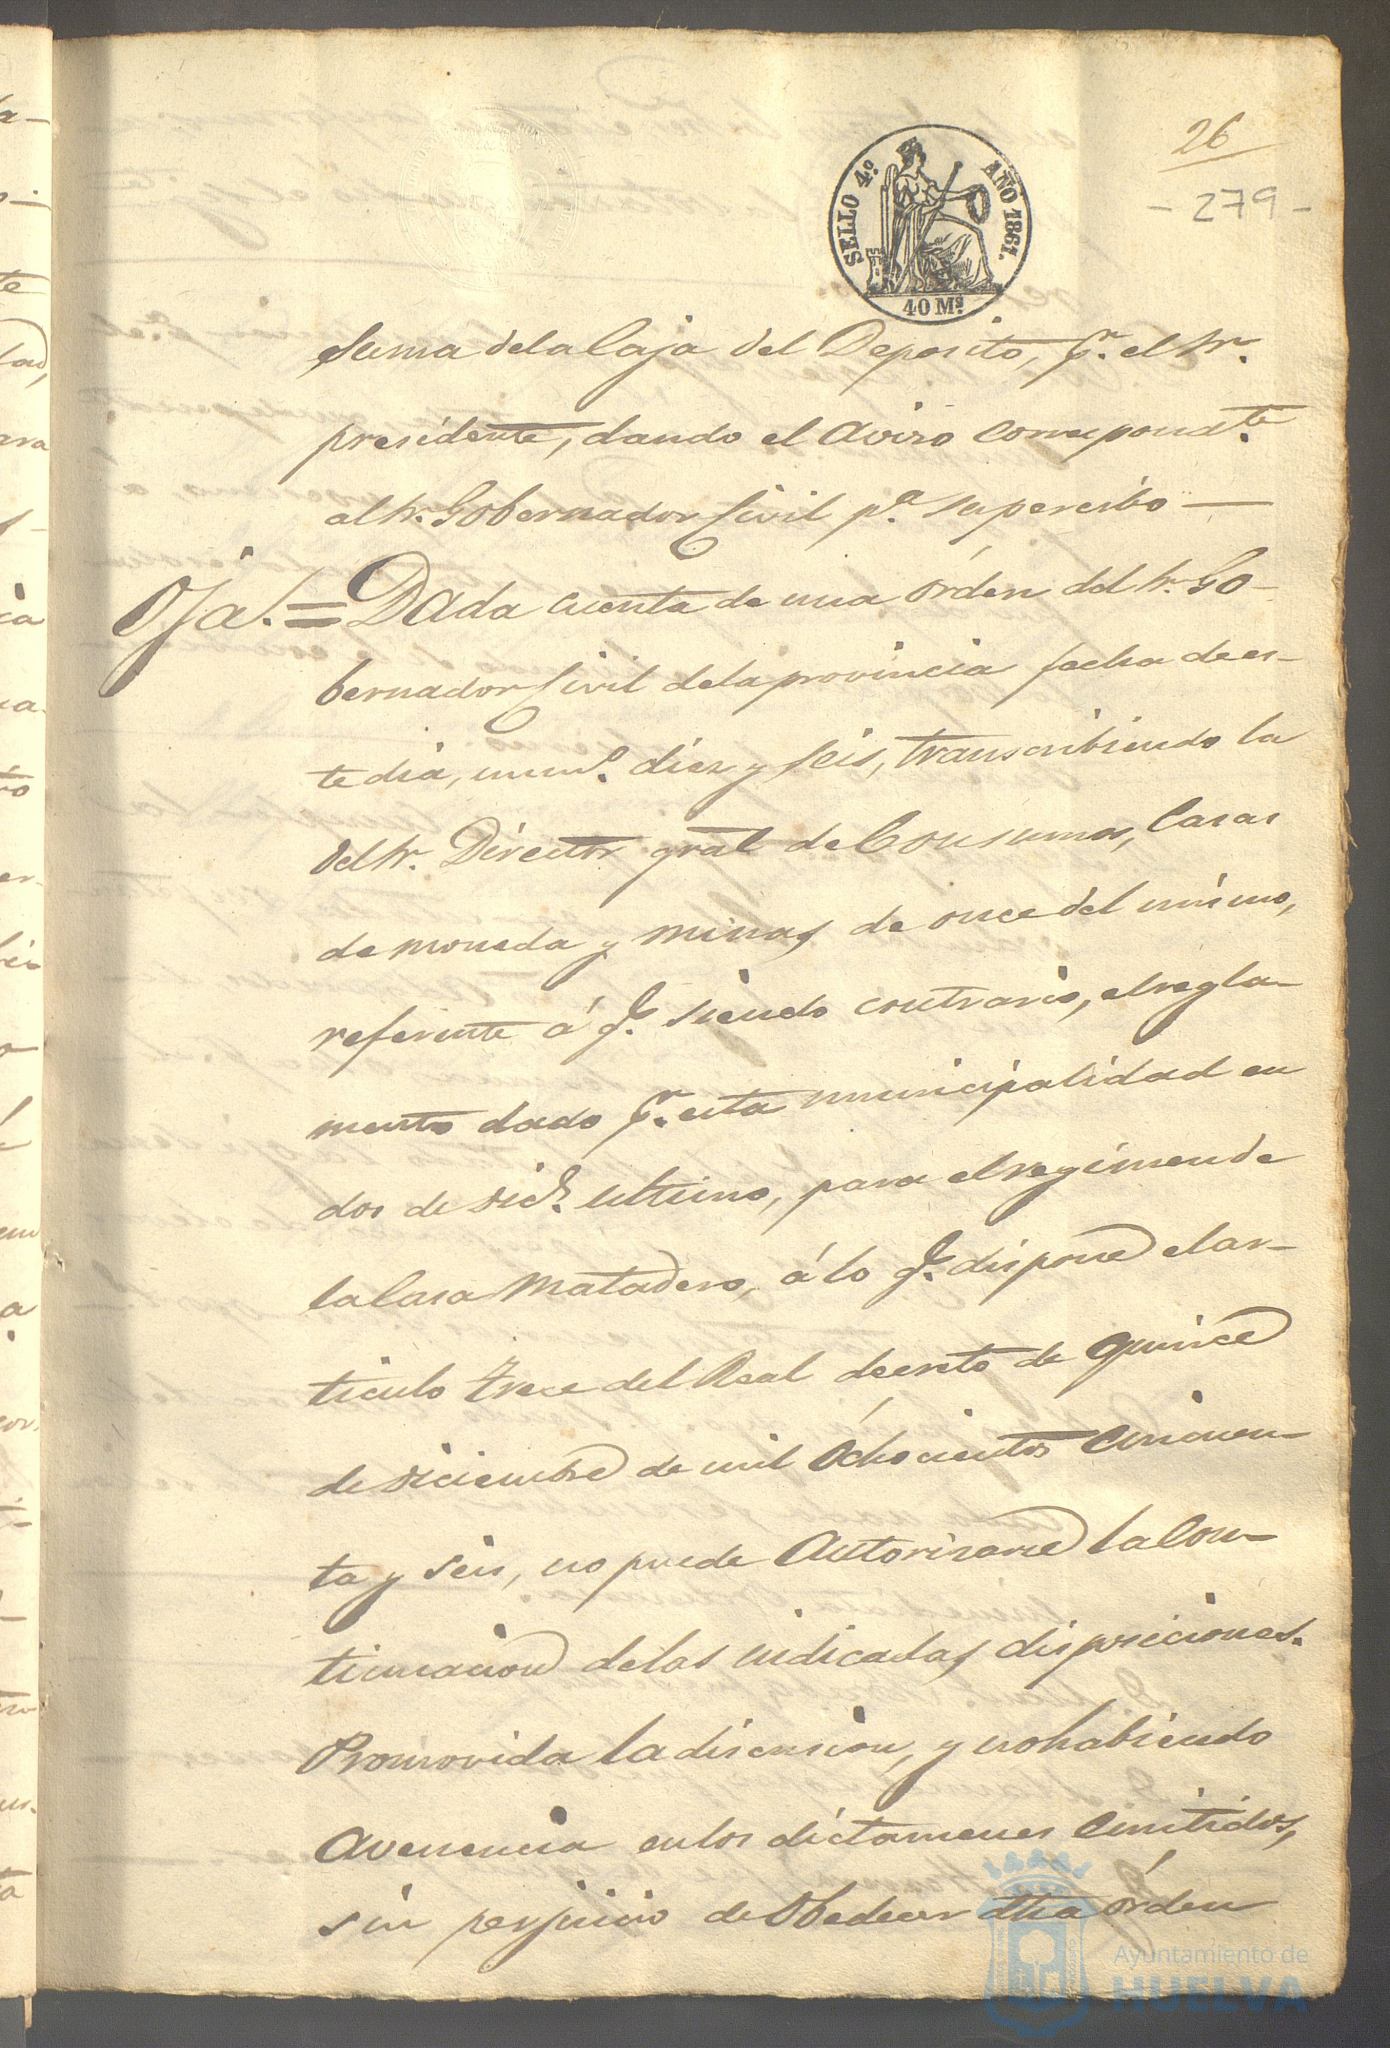 26
- 279 -
SELLO 4º AÑO 1861.
40 Ms.
suma dela Caja del Deposito, pr. el Sr.
presidente, dando el aviso correspondte.
al Sr. Gobernador Civil pa. su percibo —
Oja. = Dada cuenta de una órden del Sr. Go-
bernador Civil dela provincia fecha de es-
te dia, numo. diez y seis, transcribiendo la
del Sr. Director gral de Consumos, Casas
de moneda y minas de once del mismo,
referente á q. siendo contrario, el regla-
mento dado pr. esta municipalidad en
dos de Dice. ultimo, para el regimen de
la Casa Matadero, á lo q. dispone el ar-
ticulo trece del Real decreto de quince
de diciembre de mil ochocientos cincuen-
ta y seis, no puede autorizarse la Con-
tinuacion delas indicadas disposiciones.
Promovida la discusion, y no habiendo
avenencia en los dictamenes emitidos,
sin perjuicio de obedecer dha órden
Ayuntamiento de
HUELVA